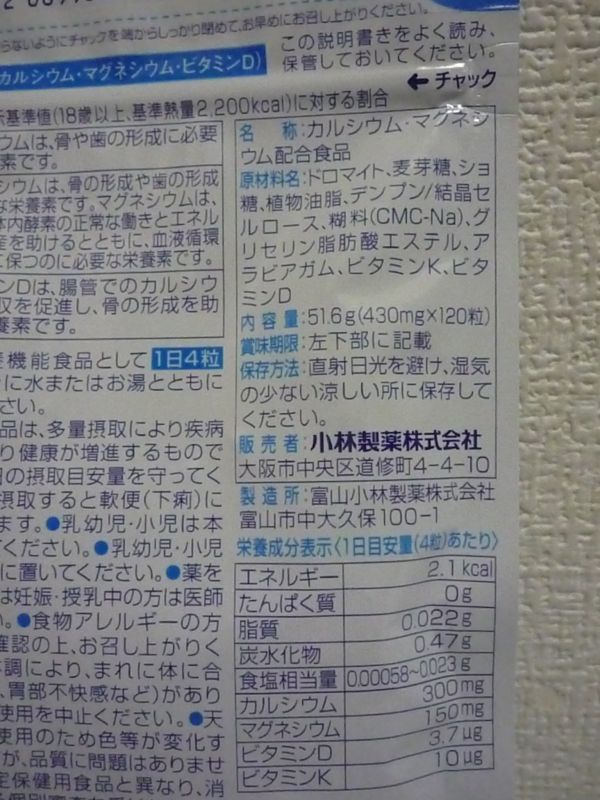 らないようにチャックを端からしっかり閉めて、お早めにお召し上がりください。
この説明書きをよく読み、
保管しておいてください。
カルシウム・マグネシウム・ビタミンD)
← チャック
示基準値(18歳以上、基準熱量2,200kcal)に対する割合
ウムは、骨や歯の形成に必要
素です。
シウムは、骨の形成や歯の形成
な栄養素です。マグネシウムは、
体内酵素の正常な働きとエネル
産を助けるとともに、血液循環
に保つのに必要な栄養素です。
ンDは、腸管でのカルシウ
収を促進し、骨の形成を助
養素です。
機能食品として1日4粒
に水またはお湯とともに
さい。
品は、多量摂取により疾病
り健康が増進するもので
日の摂取目安量を守ってく
摂取すると軟便(下痢)に
ます。●乳幼児・小児は本
ください。●乳幼児・小児
に置いてください。●薬を
は妊娠・授乳中の方は医師
い。●食物アレルギーの方
確認の上、お召し上がりく
体調により、まれに体に合
、胃部不快感など)があり
使用を中止ください。●天
使用のため色等が変化す
が、品質に問題はありませ
定保健用食品と異なり、消
名 称:カルシウム・マグネシ
ウム配合食品
原材料名:ドロマイト、麦芽糖、ショ
糖、植物油脂、デンプン/結晶セ
ルロース、糊料(CMC-Na)、グ
リセリン脂肪酸エステル、ア
ラビアガム、ビタミンK、ビタ
ミンD
内 容 量:51.6g(430mg×120粒)
賞味期限:左下部に記載
保存方法:直射日光を避け、湿気
の少ない涼しい所に保存して
ください。
販 売 者:小林製薬株式会社
大阪市中央区道修町4-4-10
製 造 所:富山小林製薬株式会社
富山市中大久保100-1
栄養成分表示〈1日目安量(4粒)あたり〉
エネルギー 2.1kcal
たんぱく質 0g
脂質 0.022g
炭水化物 0.47g
食塩相当量 0.00058~0.023g
カルシウム 300mg
マグネシウム 150mg
ビタミンD 3.7μg
ビタミンK 10μg